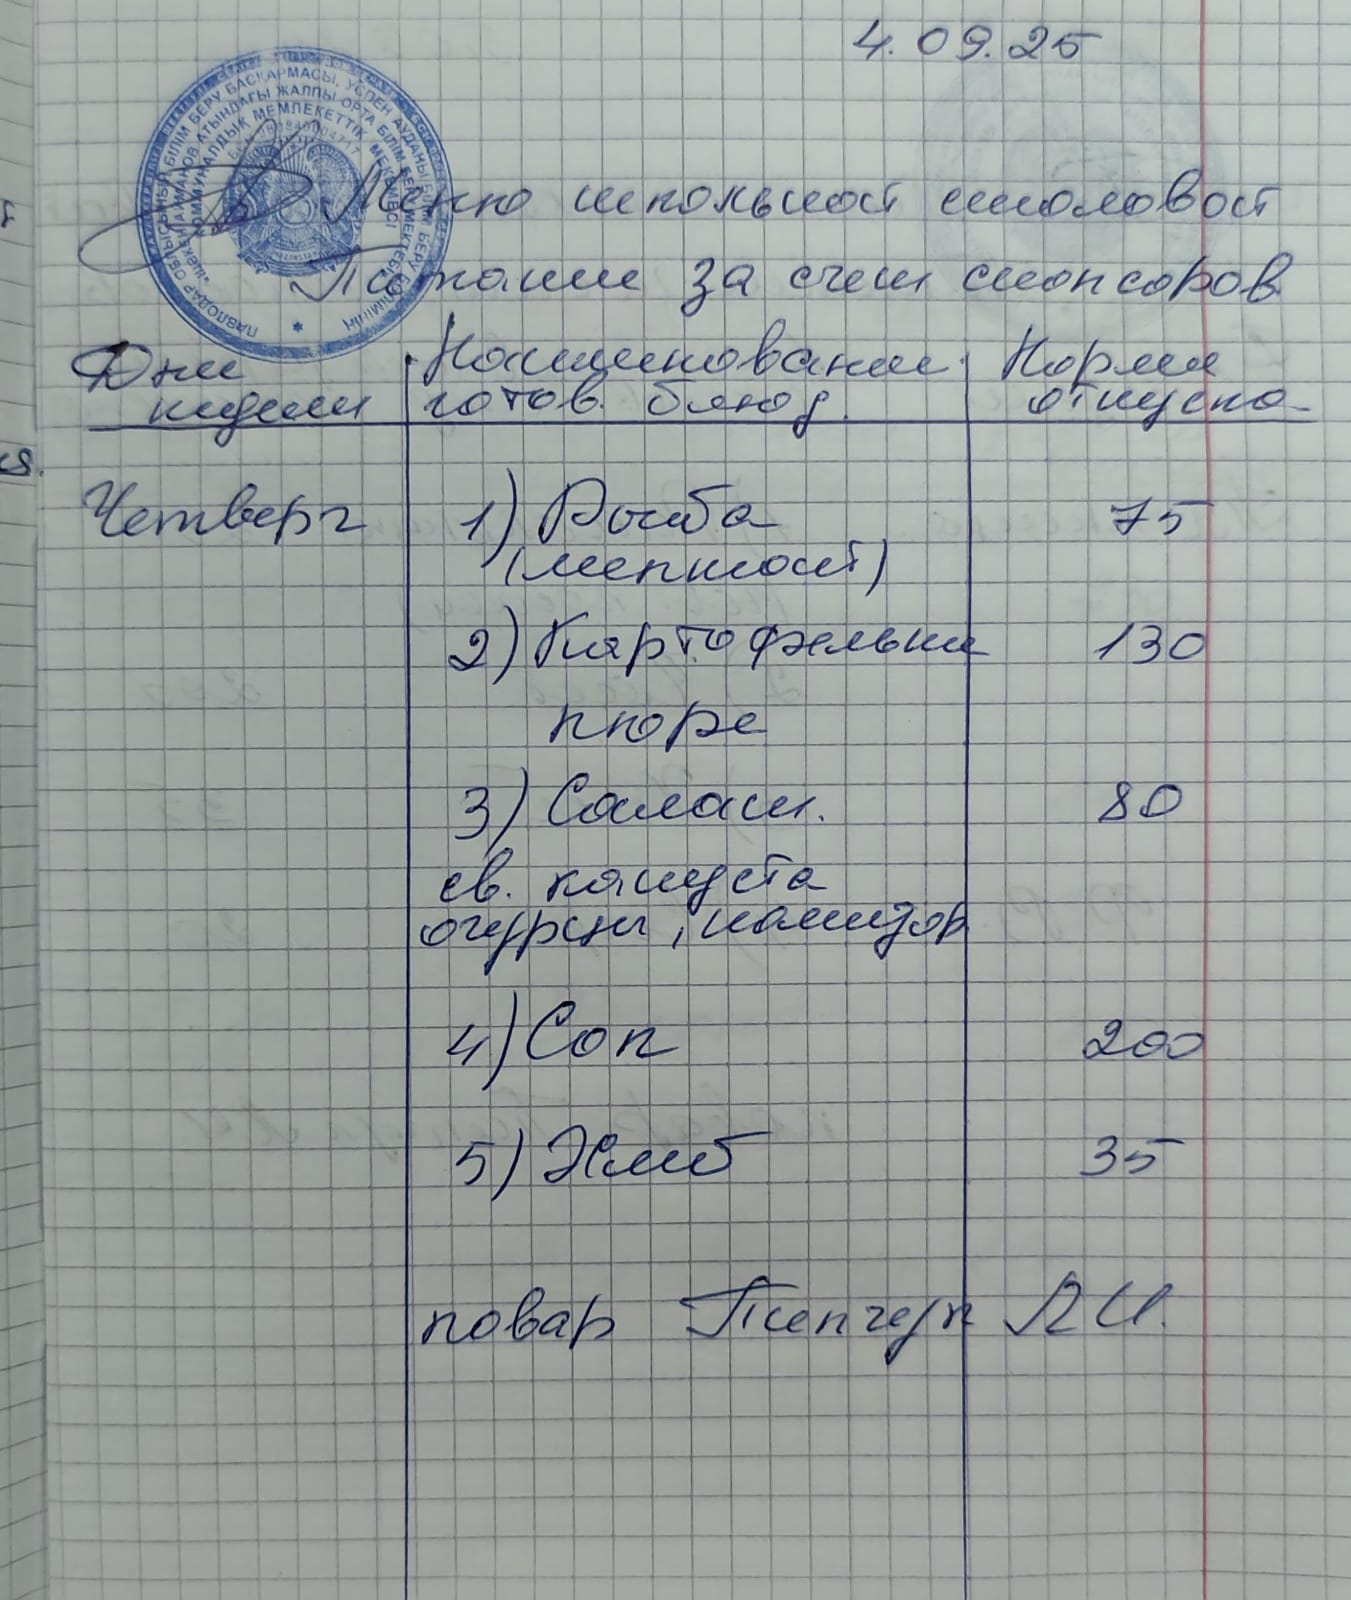 4.09.25
ПАВЛОДАР ОБЛЫСЫНЫҢ БІЛІМ БЕРУ БАСҚАРМАСЫ, УСПЕН АУДАНЫ БІЛІМ БЕРУ БӨЛІМІНІҢ
АТЫНДАҒЫ ЖАЛПЫ ОРТА БІЛІМ БЕРУ МЕКТЕБІ
КОММУНАЛДЫҚ МЕМЛЕКЕТТІК МЕКЕМЕСІ
Меню школьной столовой
Питание за счет спонсоров
Дни Наименование Норма
недели готов. блюд. отпуска
Четверг 1) Рыба 75
(минтай)
2) Картофельне 130
пюре
3) Салат. 80
св. капуста
огурцы, помидор
4) Сок 200
5) Хлеб 35
повар